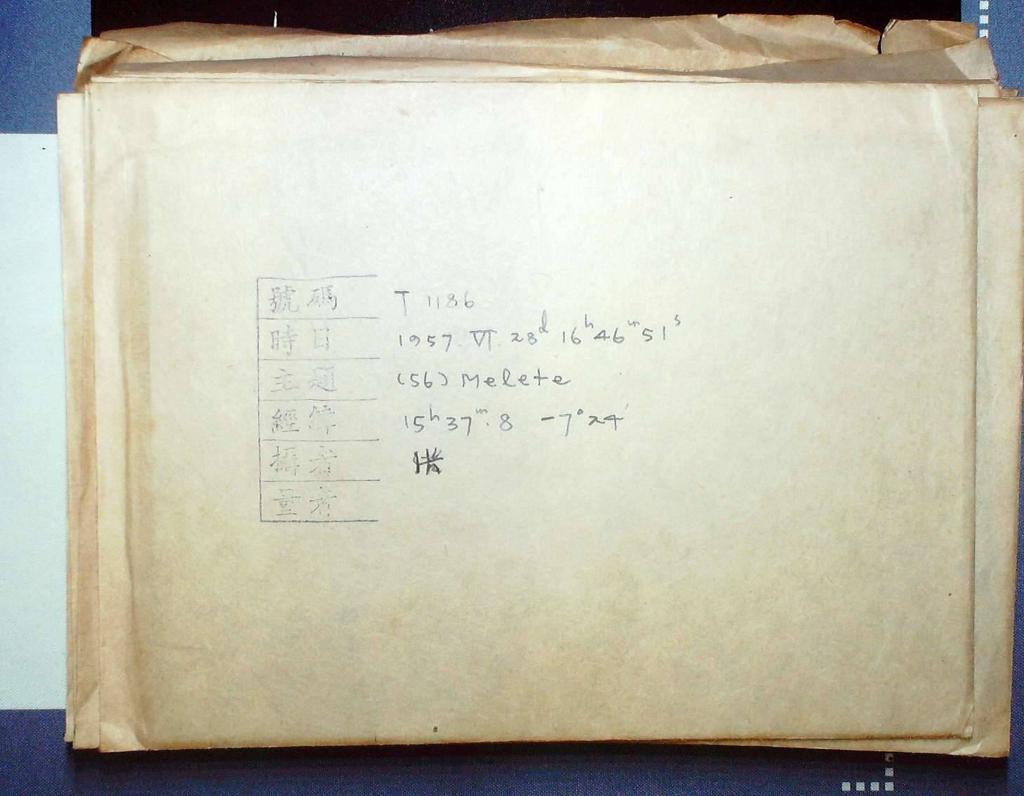 號碼 T 1186
時日 1957 VI 28ᵈ 16ʰ 46ᵐ 51ˢ
主題 (56) Melete
經緯 15ʰ 37ᵐ.8 -7°24'
攝者
量者